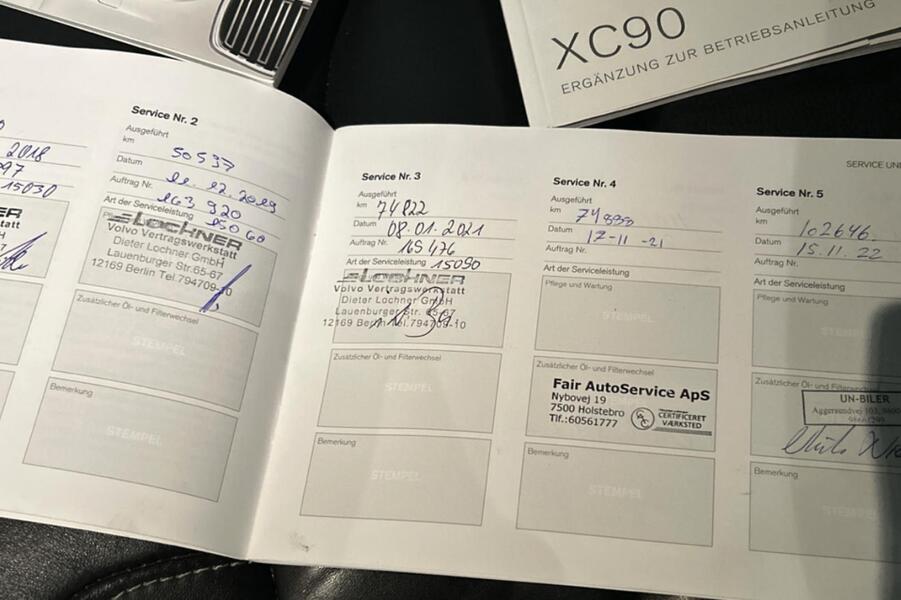 XC90
ERGÄNZUNG ZUR BETRIEBSANLEITUNG
2018
15030
Service Nr. 2
Ausgeführt
km 50537
Datum 11.12.2019
Auftrag Nr. 163 920
Art der Serviceleistung 15060
LOCHNER
Volvo Vertragswerkstatt
Dieter Lochner GmbH
Lauenburger Str.65-67
12169 Berlin Tel.794709-10
Zusätzlicher Öl- und Filterwechsel
STEMPEL
Bemerkung
STEMPEL
Service Nr. 3
Ausgeführt
km 74822
Datum 08.01.2021
Auftrag Nr. 165 476
Art der Serviceleistung 15090
LOCHNER
Volvo Vertragswerkstatt
Dieter Lochner GmbH
Lauenburger Str. 65-67
12169 Berlin Tel.794709-10
Zusätzlicher Öl- und Filterwechsel
STEMPEL
Bemerkung
STEMPEL
Service Nr. 4
Ausgeführt
km 74888
Datum 17-11-21
Auftrag Nr.
Art der Serviceleistung
Pflege und Wartung
STEMPEL
Zusätzlicher Öl- und Filterwechsel
Fair AutoService ApS
Nybovej 19
7500 Holstebro
Tlf.:60561777
CERTIFICERET
VÆRKSTED
Bemerkung
STEMPEL
SERVICE UN
Service Nr. 5
Ausgeführt
km 102646
Datum 15.11.22
Auftrag Nr.
Art der Serviceleistung
Pflege und Wartung
Zusätzlicher Öl- und Filterwechsel
UN-BILER
Aggersundvej 103,
Bemerkung